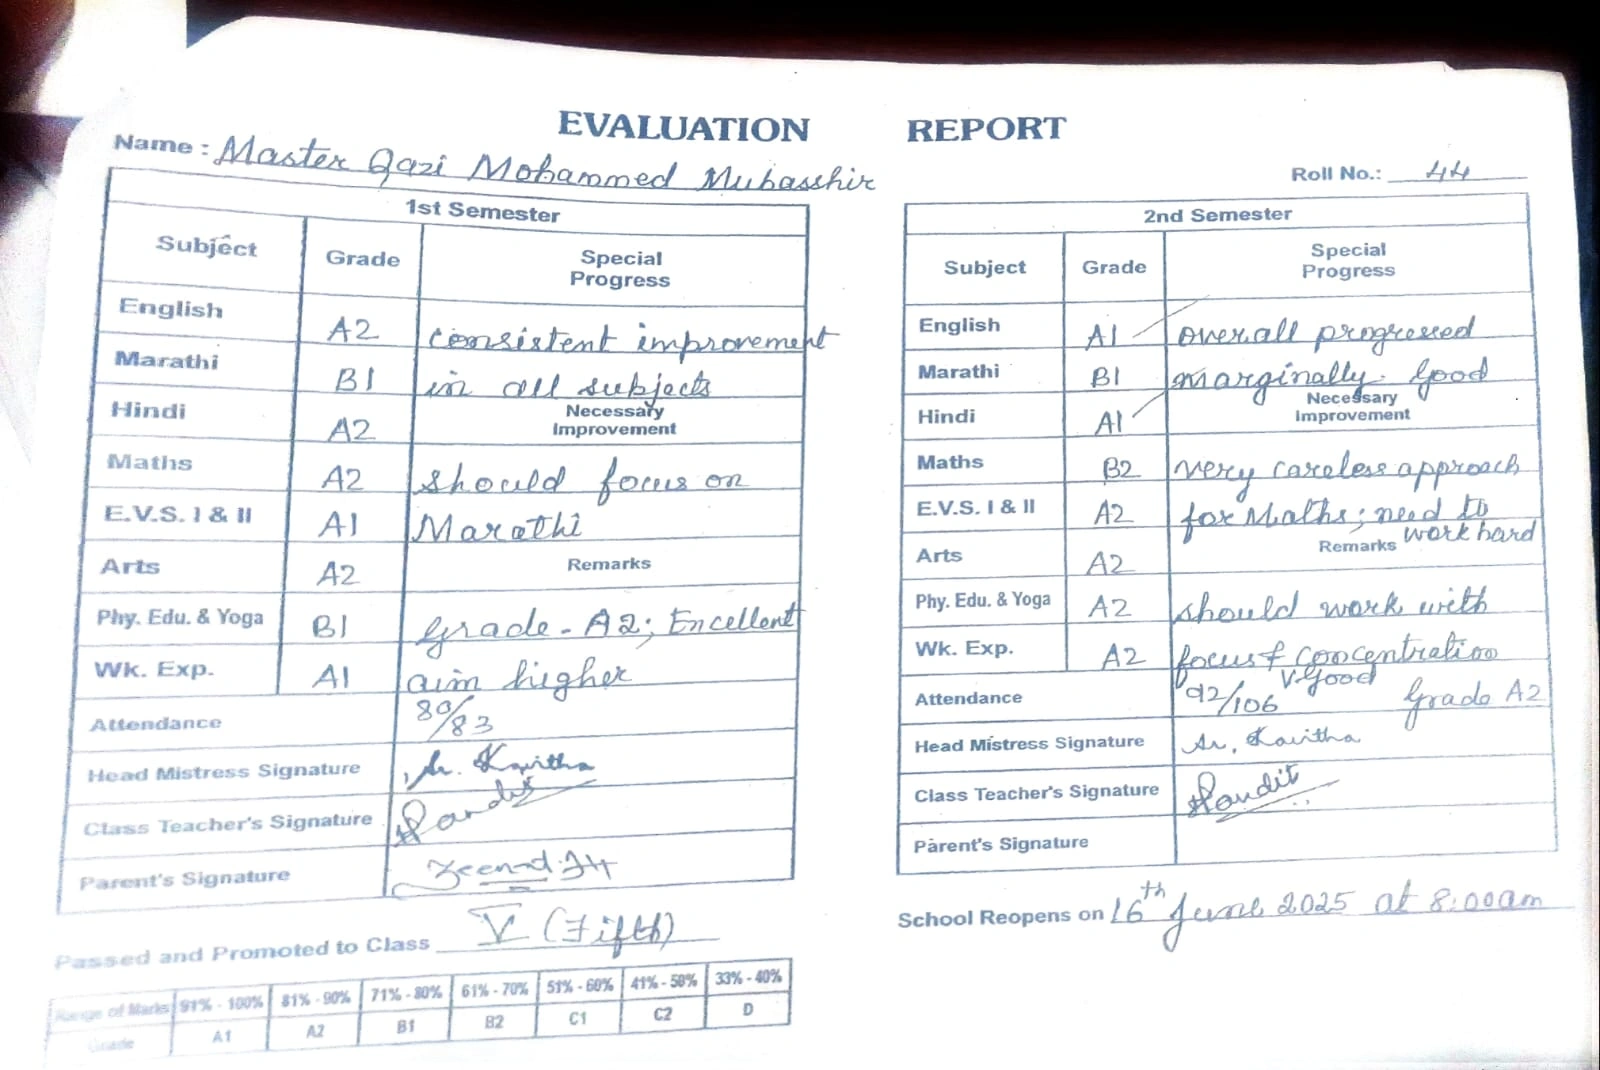 EVALUATION REPORT
Name : Master Qazi Mohammed Mubasshir
Roll No.: 44
1st Semester
Subject Grade Special Progress
English A2 consistent improvement
Marathi B1 in all subjects
Hindi A2 Necessary Improvement
Maths A2 should focus on
E.V.S. I & II A1 Marathi
Arts A2 Remarks
Phy. Edu. & Yoga B1 Grade - A2; Excellent
Wk. Exp. A1 aim higher
Attendance 80/83
Head Mistress Signature Sr. Kavitha
Class Teacher's Signature Pandit
Parent's Signature
Passed and Promoted to Class V (Fifth)
Range of Marks 91% - 100% 81% - 90% 71% - 80% 61% - 70% 51% - 60% 41% - 50% 33% - 40%
Grade A1 A2 B1 B2 C1 C2 D
2nd Semester
Subject Grade Special Progress
English A1 overall progressed
Marathi B1 marginally. Good
Hindi A1 Necessary Improvement
Maths B2 very careless approach
E.V.S. I & II A2 for Maths; need to
work hard
Arts A2 Remarks
Phy. Edu. & Yoga A2 should work with
Wk. Exp. A2 focus & concentration
Attendance 92/106 V.Good Grade A2
Head Mistress Signature Sr. Kavitha
Class Teacher's Signature Pandit
Parent's Signature
School Reopens on 16th June 2025 at 8:00am